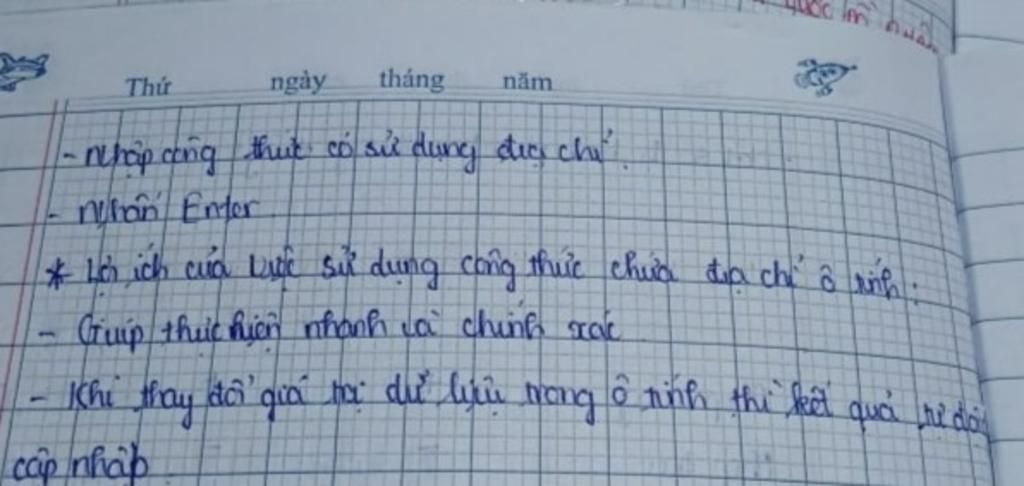 quốc
Thứ ngày tháng năm
- Nhập công thức có sử dụng địa chỉ.
- Nhấn Enter
* Lợi ích của việc sử dụng công thức chứa địa chỉ ô tính:
- Giúp thực hiện nhanh và chính xác
- Khi thay đổi giá trị dữ liệu trong ô tính thì kết quả tự động
cập nhập